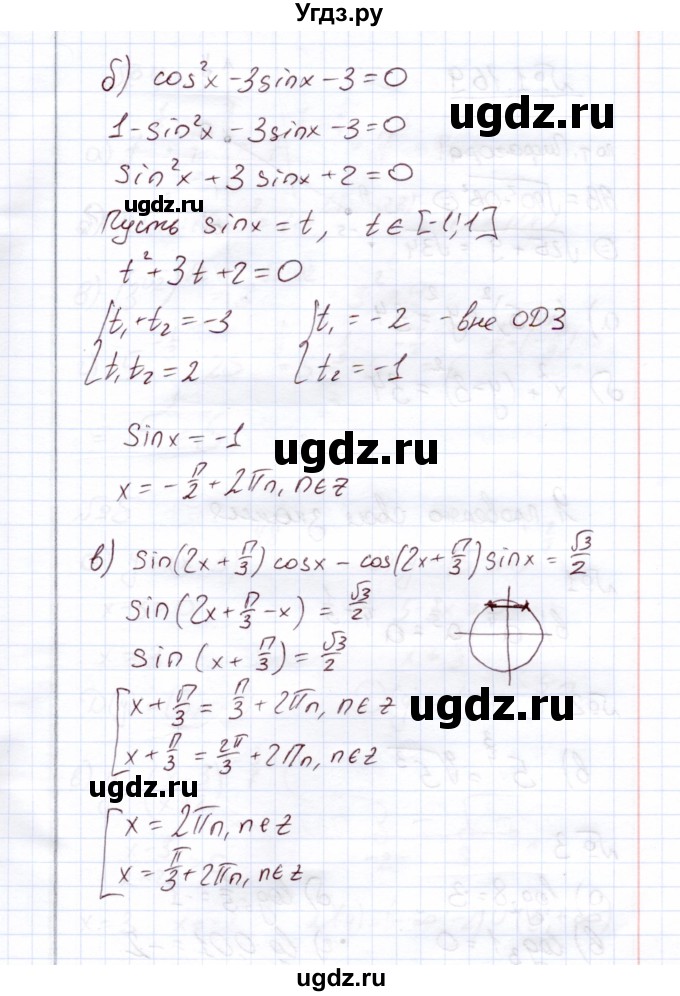 Угдз.ру
б) cos²x - 3sinx - 3 = 0
1 - sin²x - 3sinx - 3 = 0
ugdz.ru
sin²x + 3 sinx + 2 = 0
ugdz.ru
Пусть sinx = t, t ∈ [-1; 1]
t² + 3t + 2 = 0
{ t₁ + t₂ = -3 { t₁ = -2 - вне ОДЗ
t₁ t₂ = 2 t₂ = -1
Sinx = -1
ugdz.ru
x = -π/2 + 2πn, n ∈ z
в) sin(2x + π/3) cosx - cos(2x + π/3) sinx = √3/2
sin(2x + π/3 - x) = √3/2
sin (x + π/3) = √3/2
[ x + π/3 = π/3 + 2πn, n ∈ z
ugdz.ru
x + π/3 = 2π/3 + 2πn, n ∈ z
ugdz.ru
[ x = 2πn, n ∈ z
x = π/3 + 2πn, n ∈ z
ugdz.ru
ugdz.ru